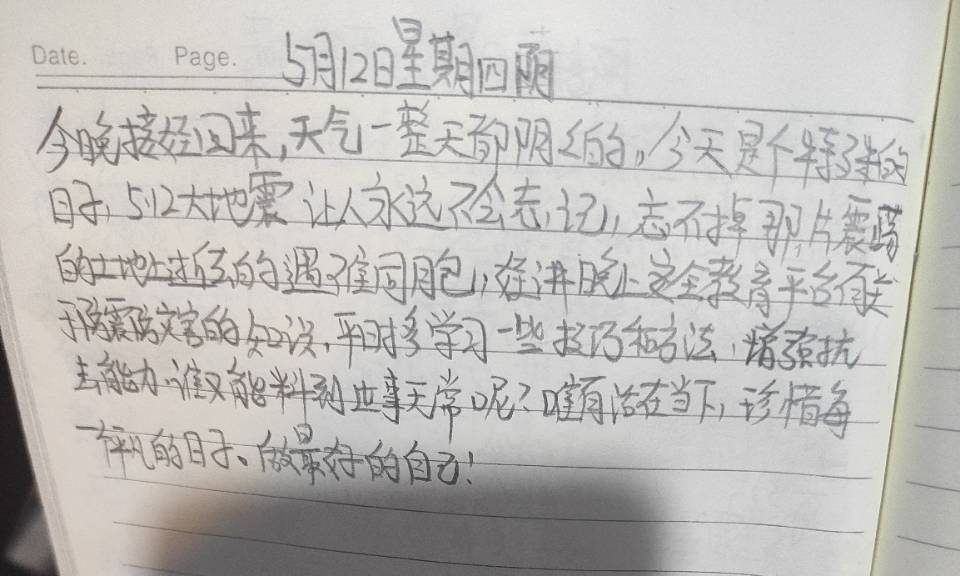 Date. Page. 5月12日星期四阴
今晚接娃回来,天气一整天都阴沉的,今天是个特殊的
日子,5.12大地震让人永远不会忘记,忘不掉那片震塌
的土地上逝去的遇难同胞,娃讲晚上安全教育平台有关
于防震防灾害的知识,平时多学习一些技巧和方法,增强抗
击能力,谁又能料到世事无常呢?唯有活在当下,珍惜每
一平凡的日子、做最好的自己!